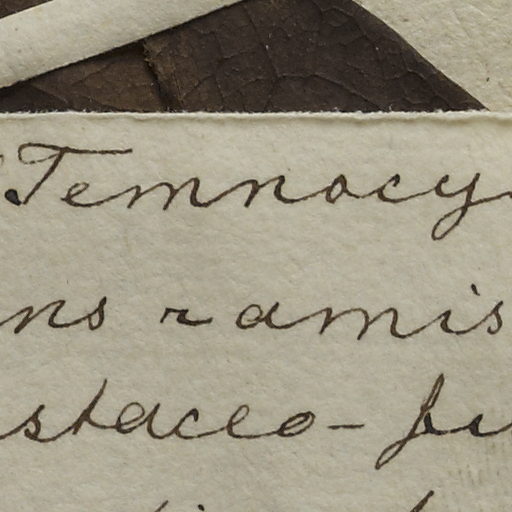 Temnocy
ns ramis
staceo-fu